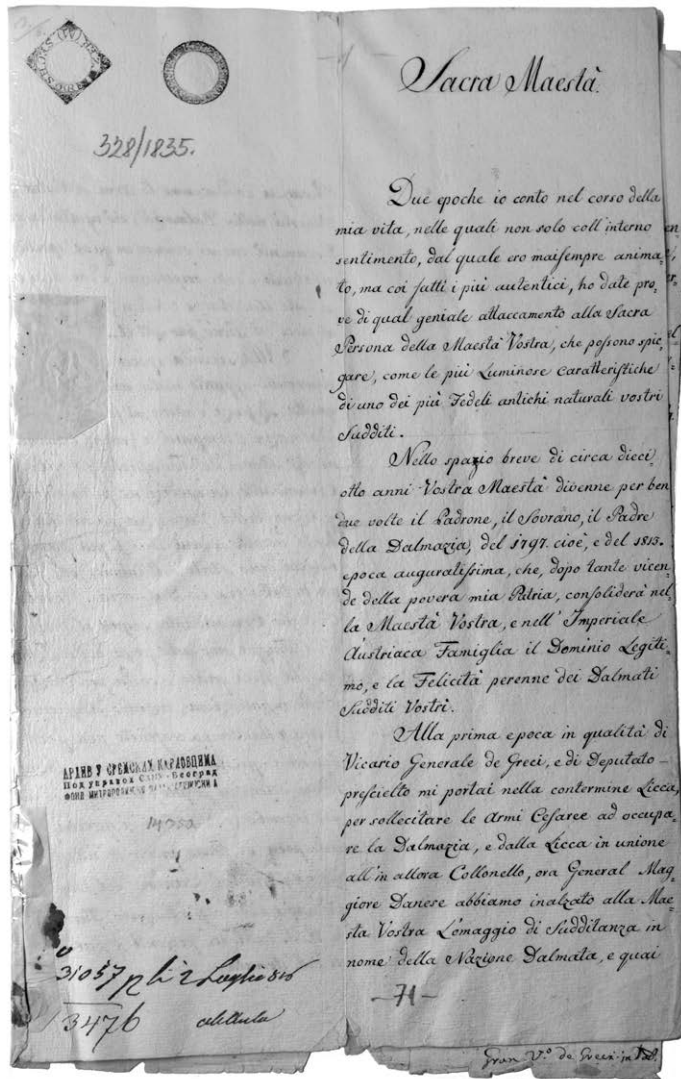 328/1835.
АРХИВ У СРЕМСКИМ КАРЛОВЦИМА
Под управом САНУ - Београд
14050
31057
2 Luglio
3476
Sacra Maestà.
Due epoche io conto nel corso della
mia vita, nelle quali non solo coll'interno
sentimento, dal quale ero maisempre anima-
to, ma coi fatti i più autentici, ho date pro-
ve di qual geniale attaccamento alla Sacra
Persona della Maestà Vostra, che possono spie-
gare, come le più Luminose caratteristiche
di uno dei più Fedeli antichi naturali vostri
Sudditi.
Nello spazio breve di circa dieci
otto anni Vostra Maestà divenne per ben
due volte il Padrone, il Sovrano, il Padre
della Dalmazia, del 1797. cioè, e del 1813.
epoca auguratissima, che, dopo tante vicen-
de della povera mia Patria, consoliderà nel-
la Maestà Vostra, e nell'Imperiale
Austriaca Famiglia il Dominio Legiti-
mo, e la Felicità perenne dei Dalmati
Sudditi Vostri.
Alla prima epoca in qualità di
Vicario Generale de Greci, e di Deputato
prescielto mi portai nella contermine Licca,
per sollecitare le Armi Cesaree ad occupa-
re la Dalmazia, e dalla Licca in unione
all'in allora Collonello, ora General Mag-
giore Danese abbiamo inalzato alla Mae-
sta Vostra L'omaggio di Sudditanza in
nome della Nazione Dalmata, e quai
-71-
Gran V.o de Greci in